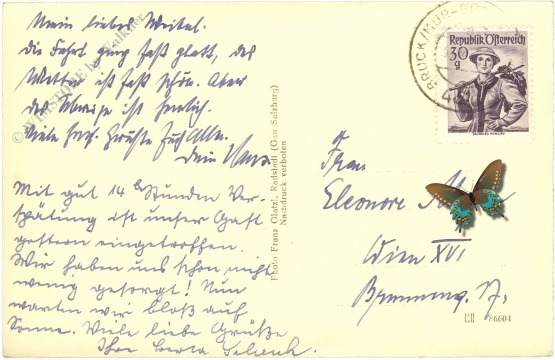 Mein lieber Weikel.
Die Fahrt ging fast glatt, das
Wetter ist fast schön. Aber
die ist herrlich.
Viele herz. Grüsse Euch Allen.
Dein
Mit gut 14 Stunden Ver-
spätung ist unser Gast
gestern eingetroffen.
Wir haben uns schon nicht
wenig gesorgt! Nun
warten wir bloß auf
Sonne. Viele liebe Grüße
Ihre Berta
Photo Franz Glatzl, Radstadt (Gau Salzburg)
Nachdruck verboten
BRUCK/MUR
Republik Österreich
30
g
Frau
Eleonore
Wien XVI
86604